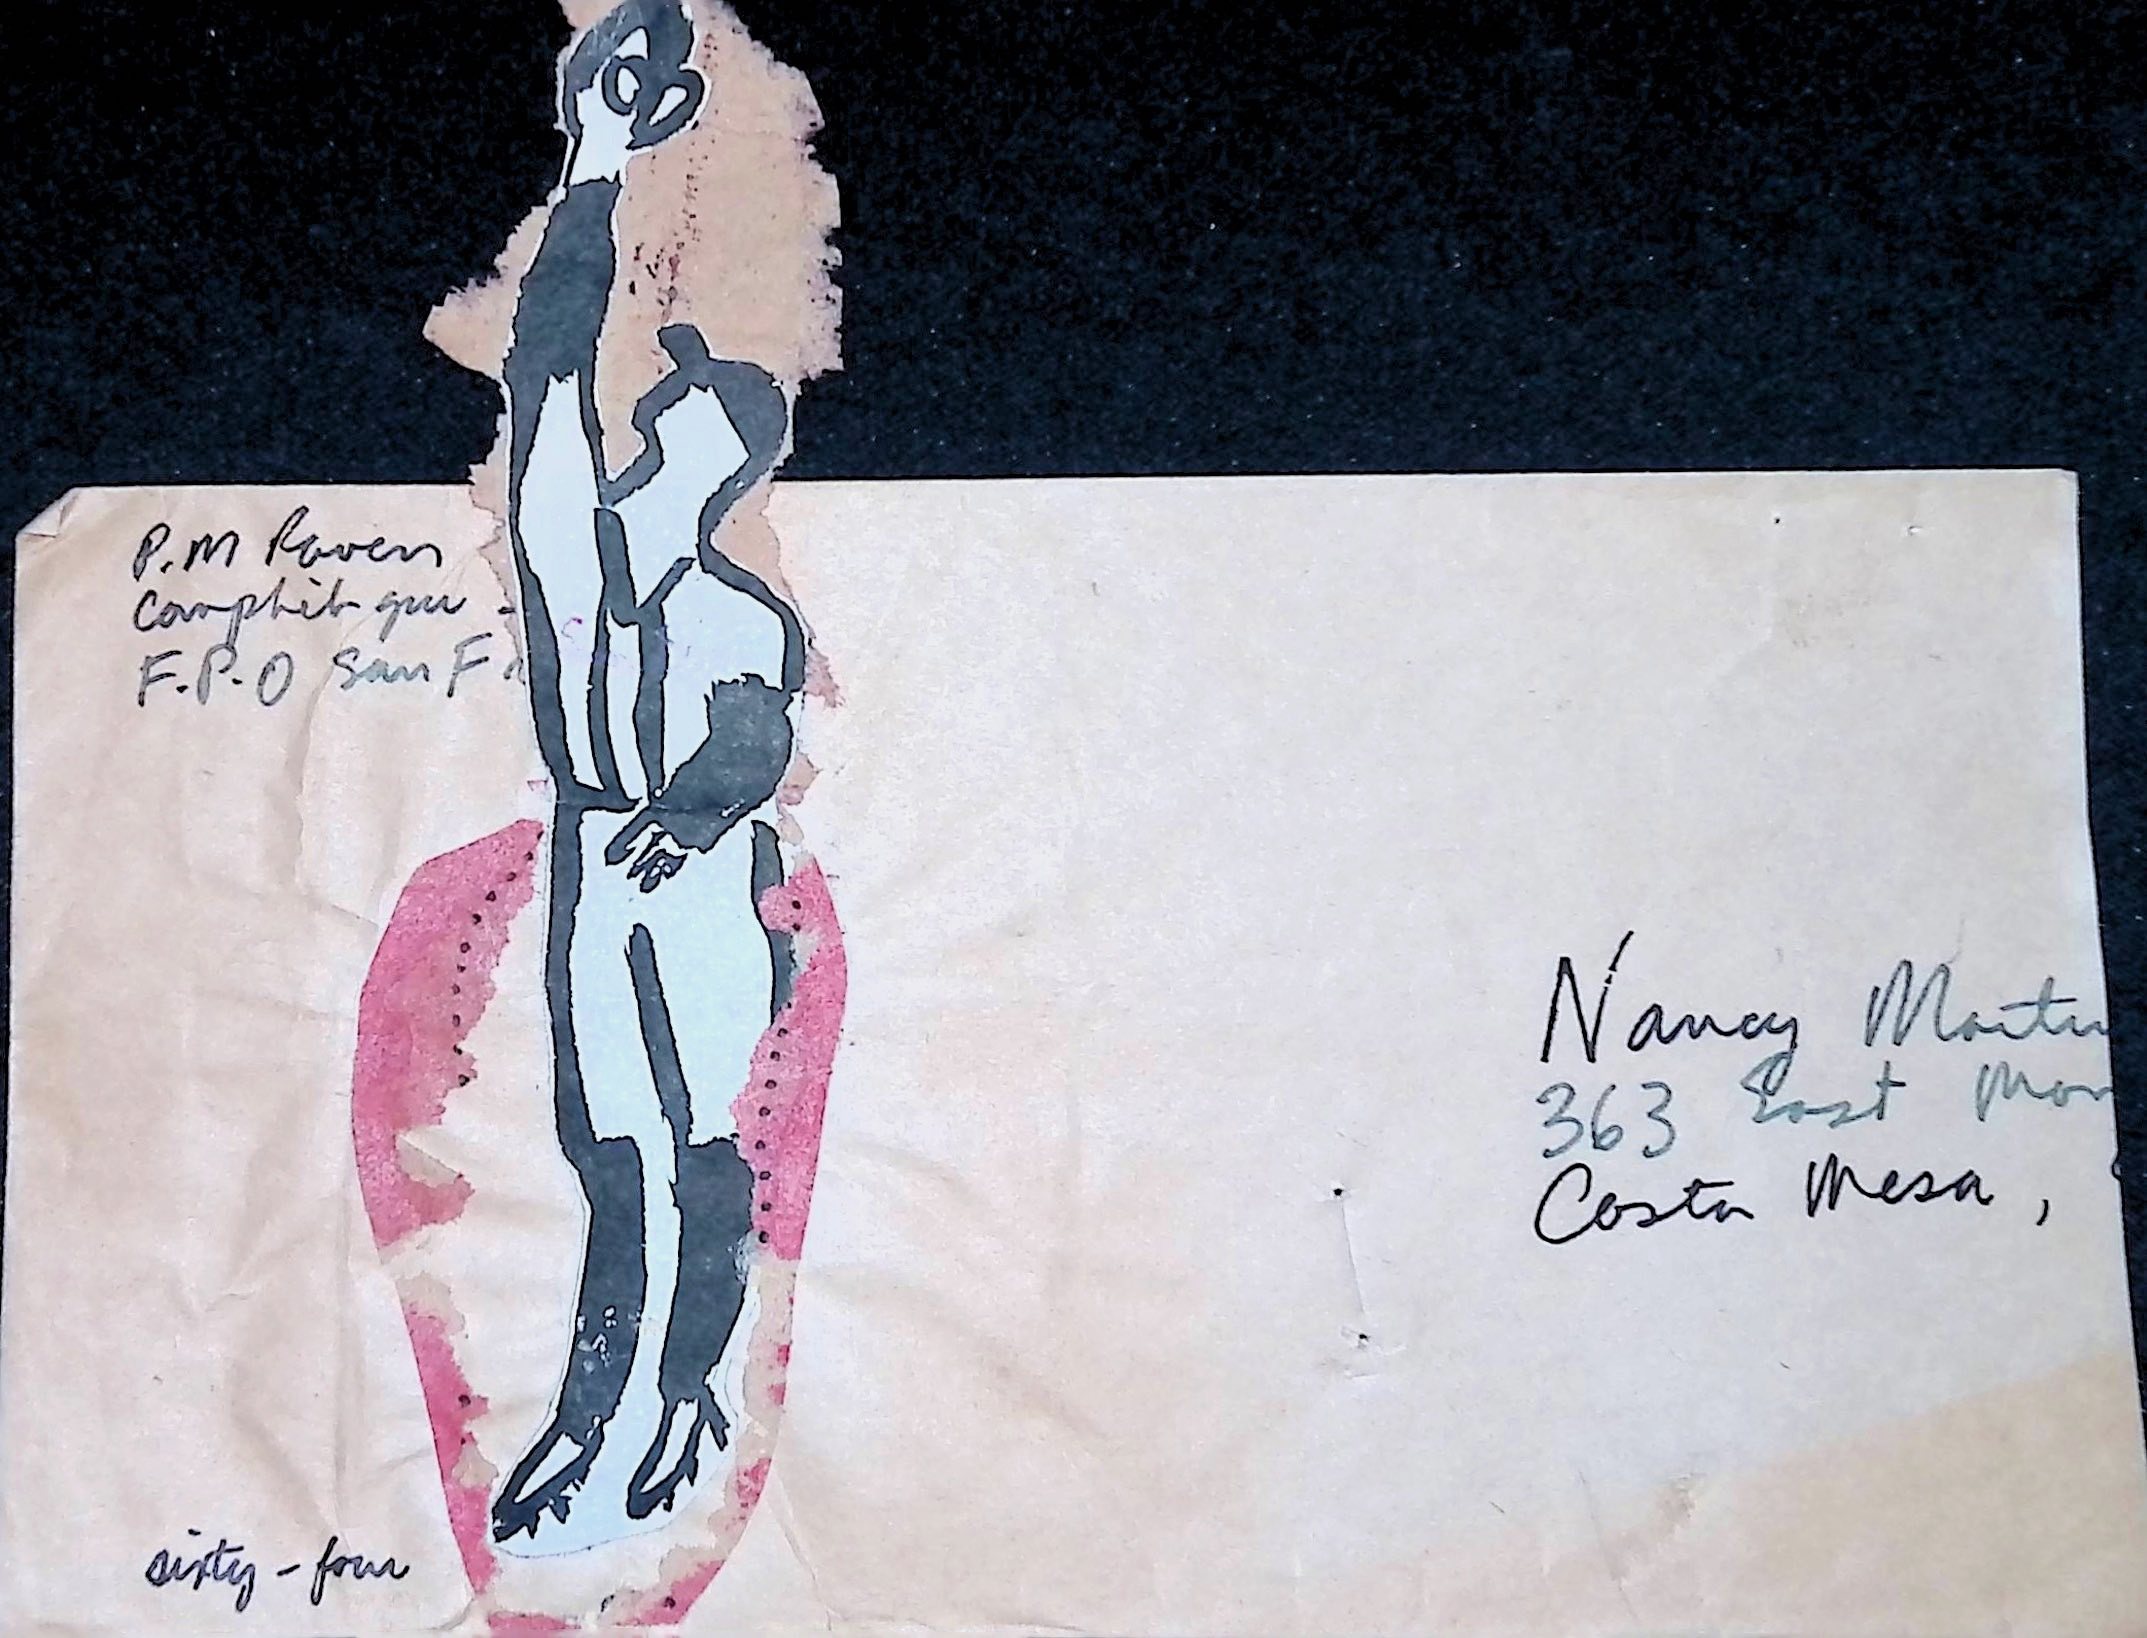 P.M Raven
Camphib gru -
F.P.O San F
Nancy Martin
363 East Mon
Costa Mesa,
sixty-four